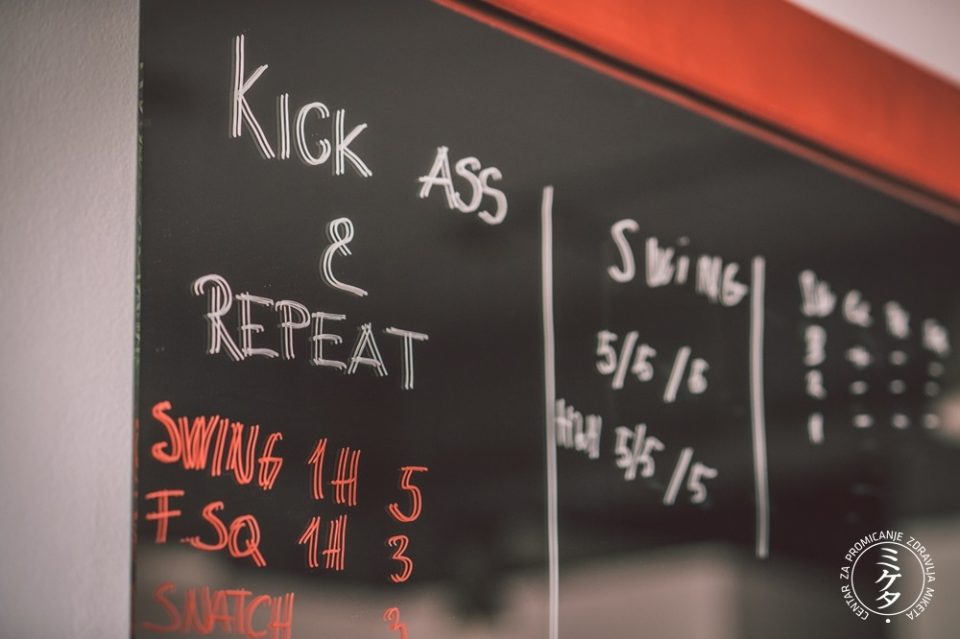 KICK ASS
&
REPEAT
SWING 1H 5
F. SQ 1H 3
SNATCH 3
SWING
5/5 /5
H2H 5/5 /5
3
2
1
CENTAR ZA PROMICANJE ZDRAVLJA MIKETA
ミケタ